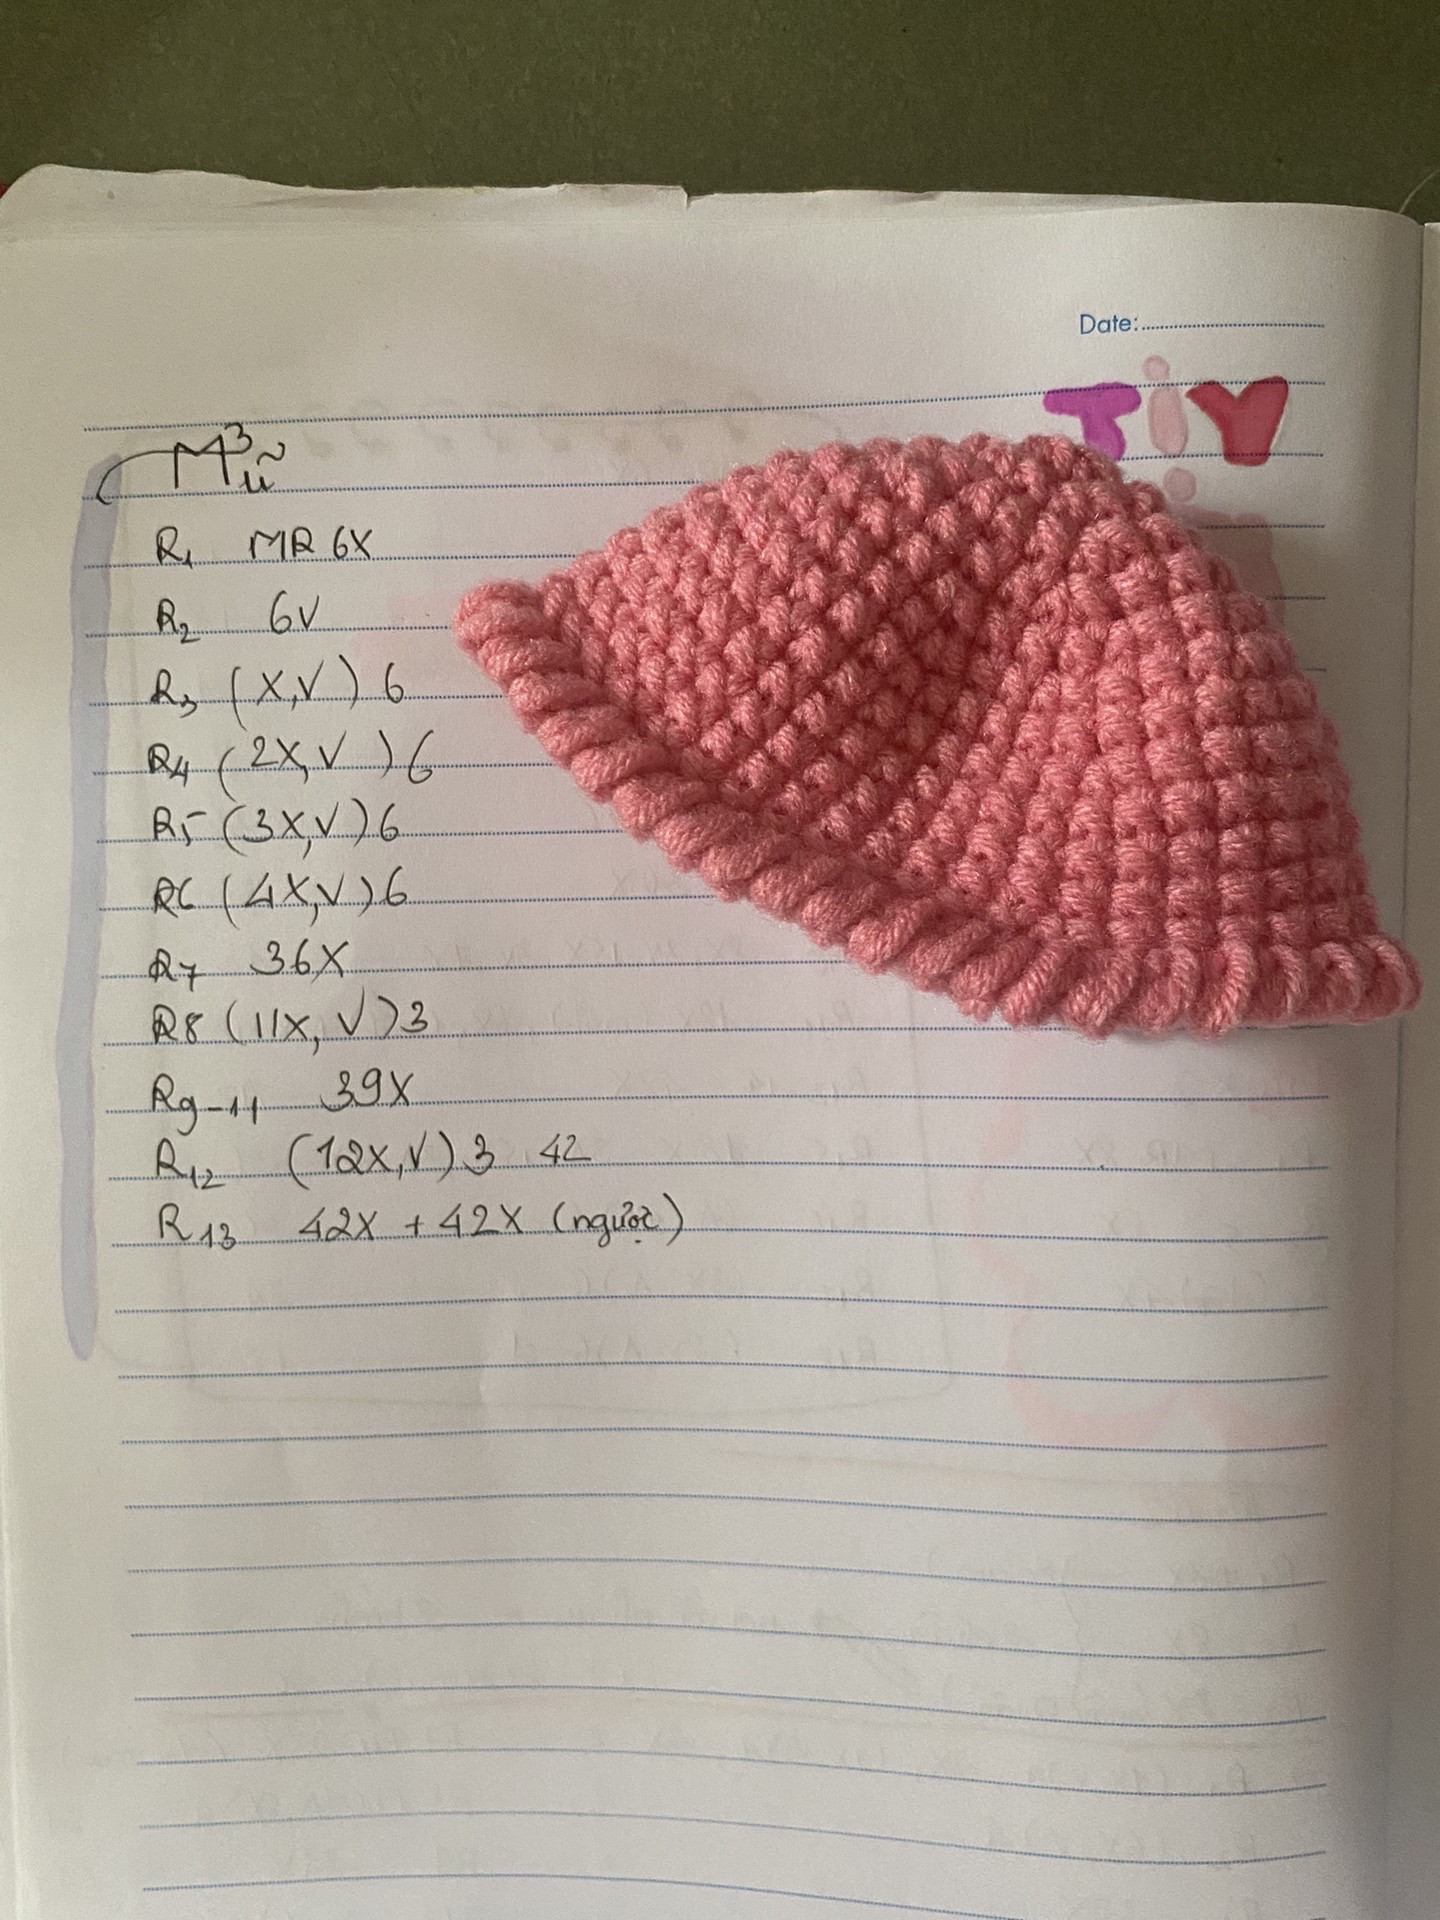 Date:
TiY
Mũ
R1 MR 6X
R2 6V
R3 (X,V) 6
R4 (2X,V) 6
R5 (3X,V) 6
R6 (4X,V) 6
R7 36X
R8 (11X,V) 3
R9-11 39X
R12 (12X,V) 3 42
R13 42X + 42X (ngược)